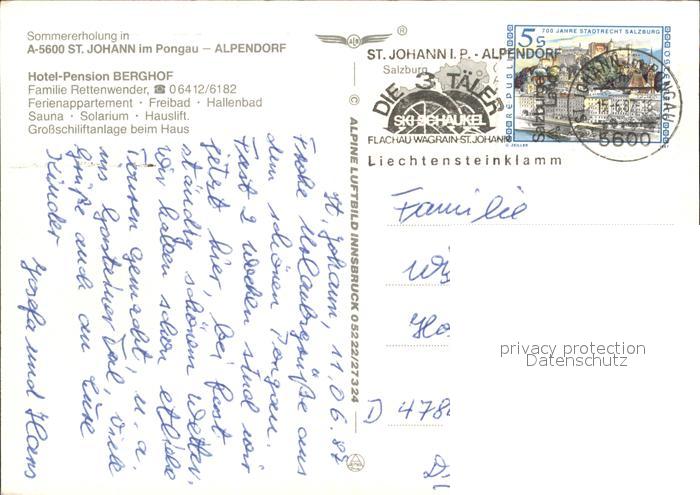 Sommererholung in
A-5600 ST. JOHANN im Pongau – ALPENDORF
Hotel-Pension BERGHOF
Familie Rettenwender, ☎ 06412/6182
Ferienappartement · Freibad · Hallenbad
Sauna · Solarium · Hauslift.
Großschiliftanlage beim Haus
© ALPINE LUFTBILD INNSBRUCK 05222/27324
St. Johann, 11.06.87
Frohe Urlaubsgrüße aus
dem schönen Pongau.
Fast 2 Wochen sind wir
jetzt hier, bei fast
ständig schönem Wetter.
Wir haben schon etliche
Touren gemacht u. a.
ins Gasteiner Tal. Viele
Grüße auch an Eure
Kinder
Josefa und Hans
ST. JOHANN I. P. - ALPENDORF
Salzburg
DIE 3 TÄLER
SKI-SCHAUKEL
FLACHAU WAGRAIN ST. JOHANN
Liechtensteinklamm
5600
5 S
700 JAHRE STADTRECHT SALZBURG
REPUBLIK
ÖSTERREICH
Familie
D 478
privacy protection
Datenschutz